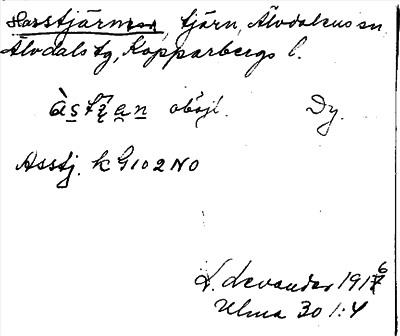 Hasstjärnen, tjärn, Älvdalens sn
Älvdals tg, Kopparbergs l.
oböjl. Dy.
Asstj. k G102NO
L. Levander 1916
Ulma 301:4